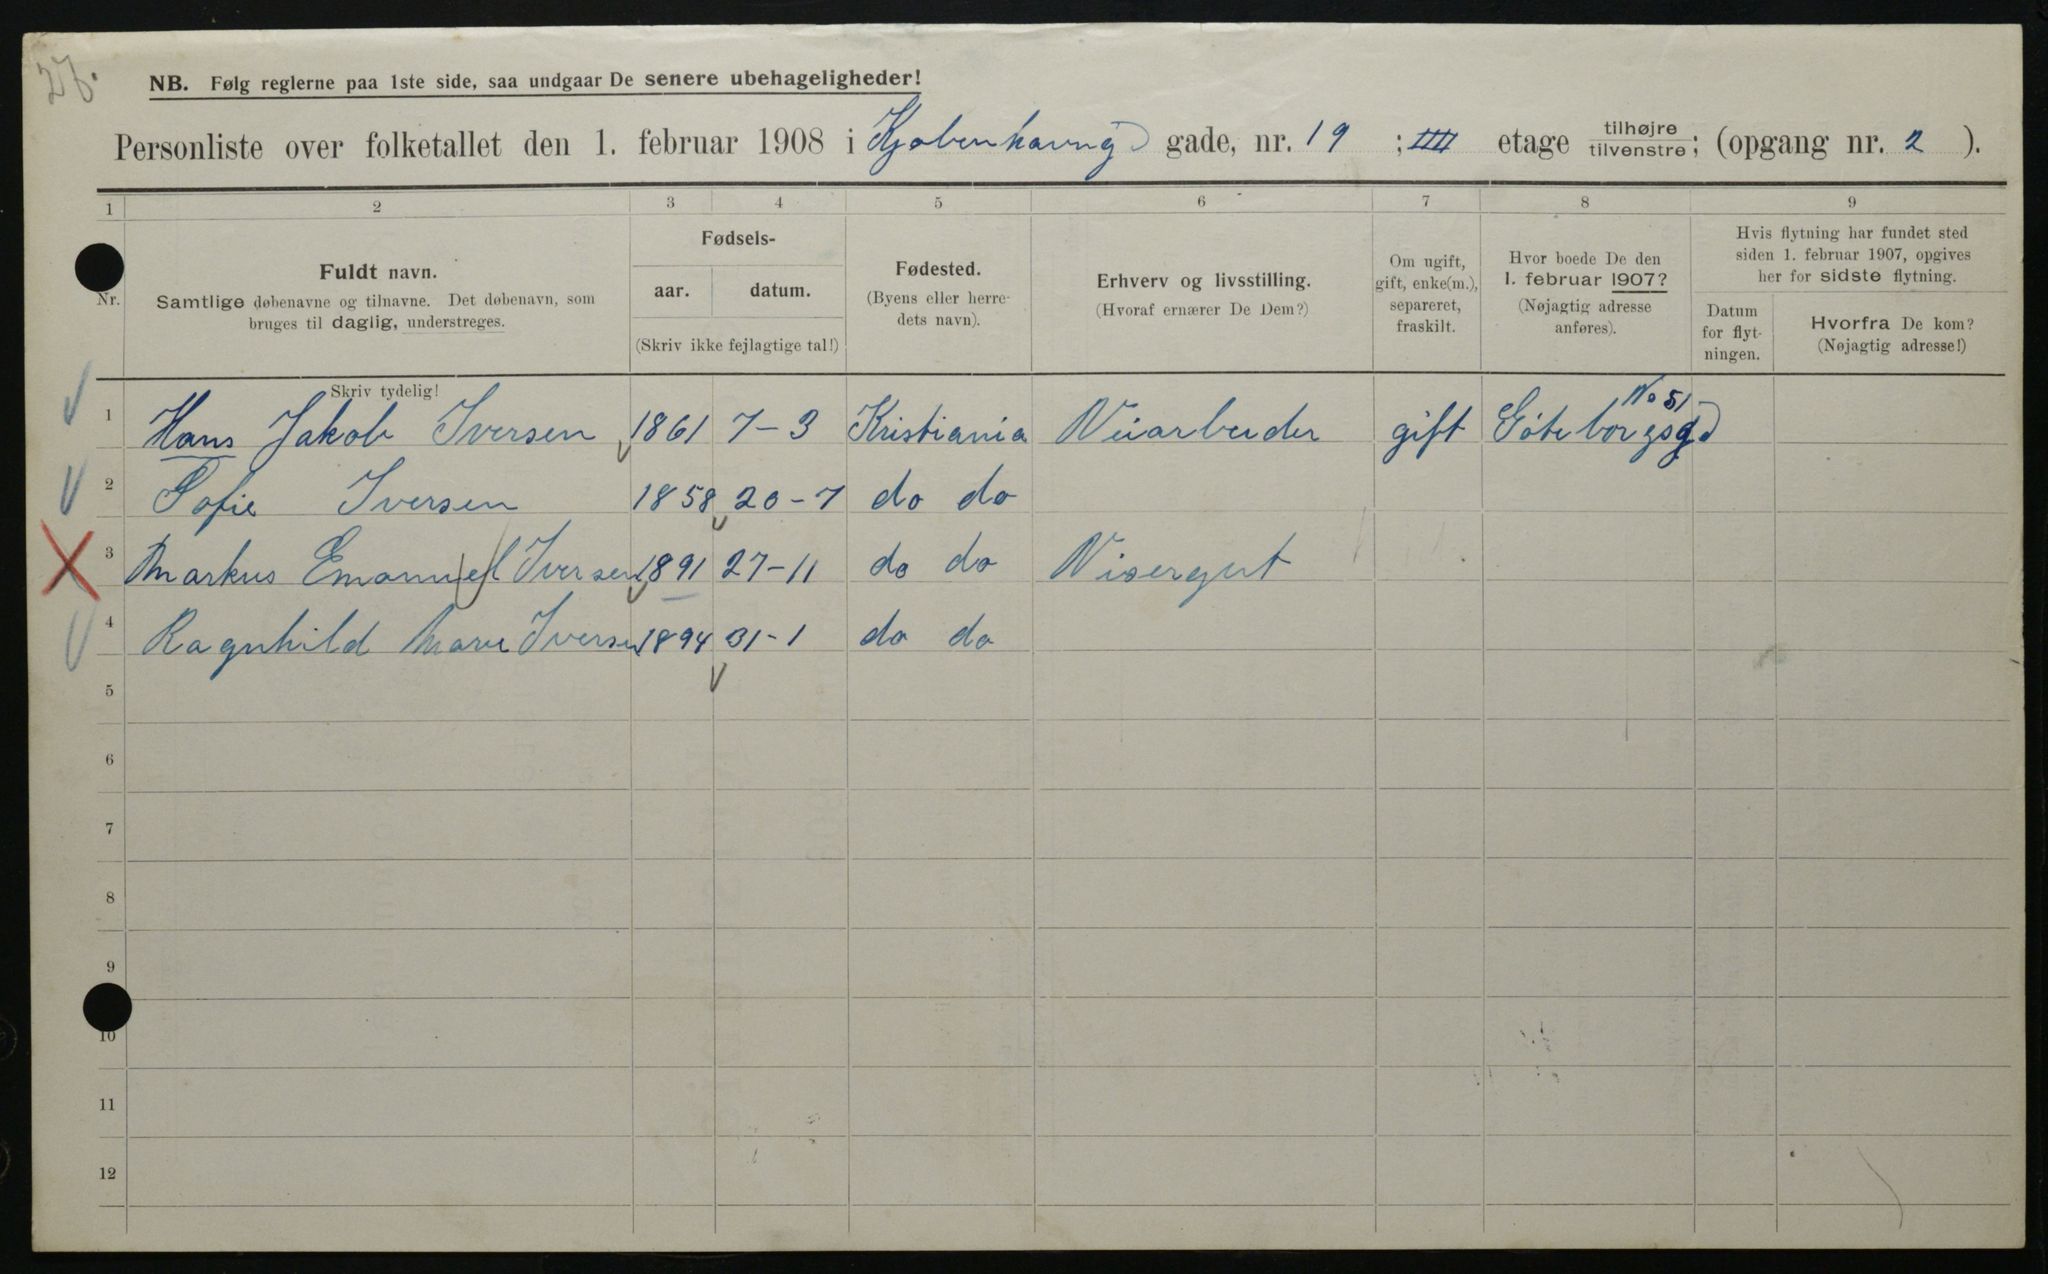 27.
NB. Følg reglerne paa 1ste side, saa undgaar De senere ubehageligheder!
Personliste over folketallet den 1. februar 1908 i Kjøbenhavng gade, nr. 19 ; IIII etage tilhøjre tilvenstre; (opgang nr. 2 ).
1 2 3 4 5 6 7 8 9
Nr.
Fuldt navn.
Samtlige døbenavne og tilnavne. Det døbenavn, som
bruges til daglig, understreges.
Skriv tydelig!
Fødsels-
aar. datum.
(Skriv ikke fejlagtige tal!)
Fødested.
(Byens eller herre-
dets navn).
Erhverv og livsstilling.
(Hvoraf ernærer De Dem?)
Om ugift,
gift, enke(m.),
separeret,
fraskilt.
Hvor boede De den
1. februar 1907?
(Nøjagtig adresse
anføres).
Hvis flytning har fundet sted
siden 1. februar 1907, opgives
her for sidste flytning.
Datum
for flyt-
ningen.
Hvorfra De kom?
(Nøjagtig adresse!)
1 Hans Jakob Iversen 1861 7-3 Kristiania Veiarbeider gift Göteborgsgd No 51
2 Sofie Iversen 1858 20-7 do do
3 Markus Emanuel Iversen 1891 27-11 do do Visergut
4 Ragnhild Marie Iversen 1894 31-1 do do
5
6
7
8
9
10
11
12